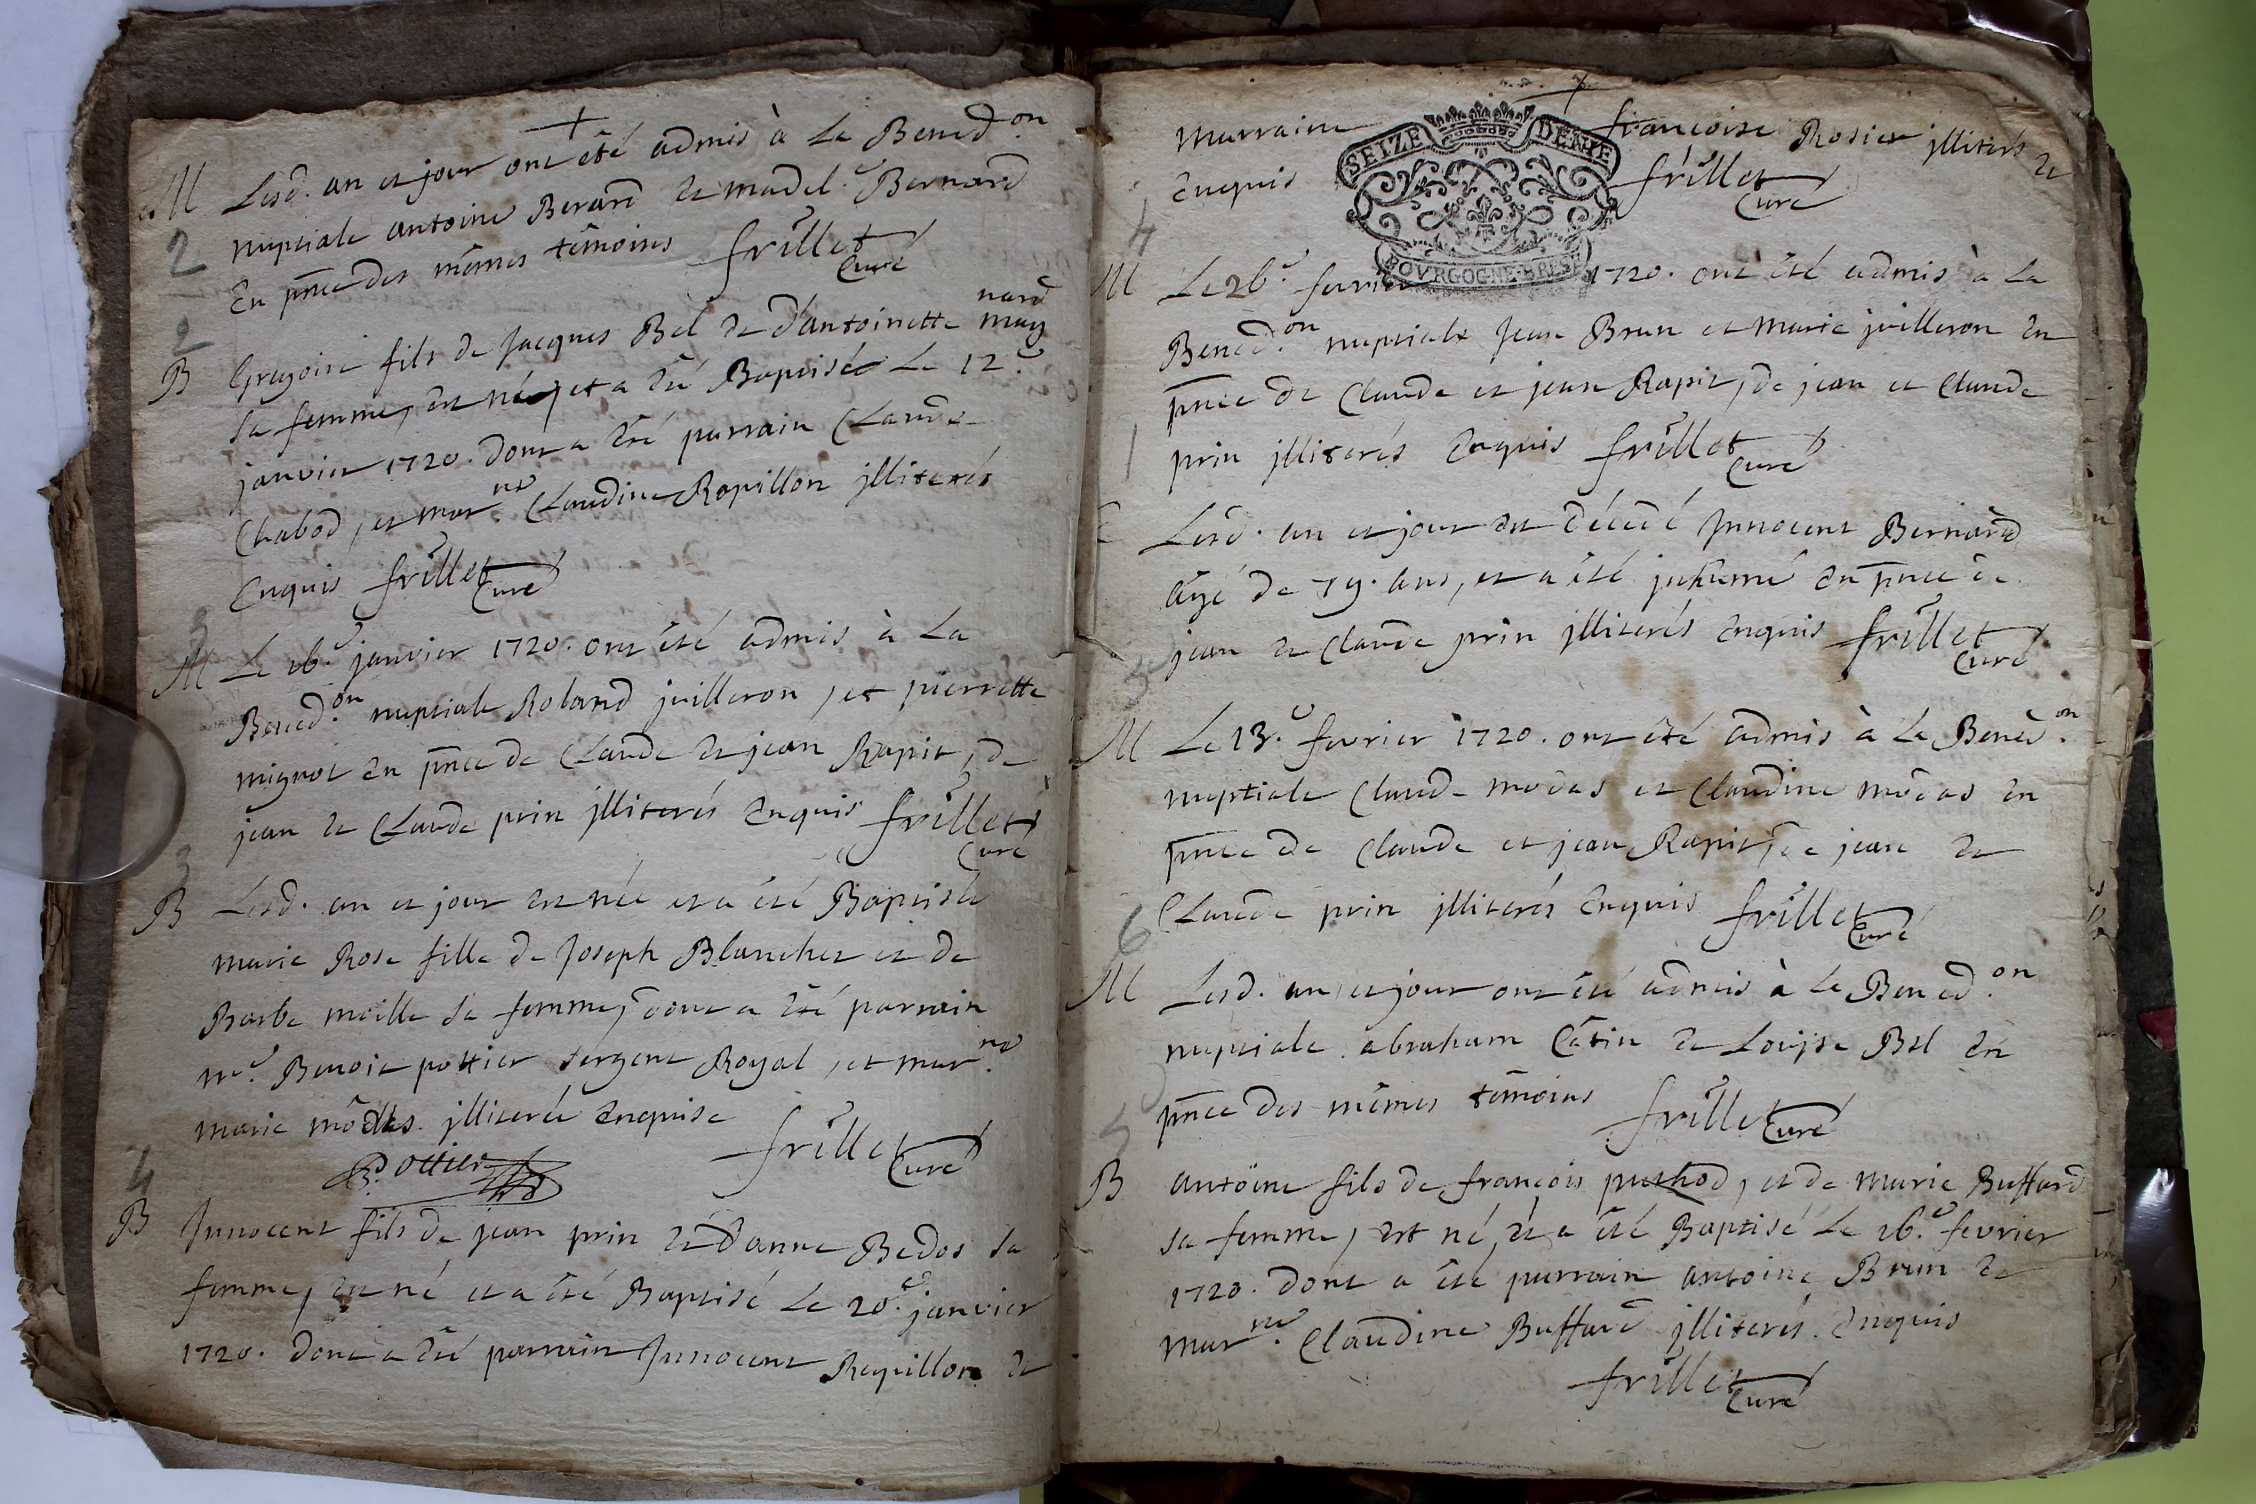 +
M Lesd. an et jour ont été admis à la Bened.on
2 nuptiale antoine Berard et madel.e Bernard
en pnce des mêmes témoins frillet Curé
2
nard
B Gregoire fils de Jacques Bel et d'antoinette may
sa femme, est né, et a été Baptisé le 12.e
janvier 1720. dont a été parrain Claude
Chabod, et mar.ne Claudine Rapillon jlliterés
Enquis frillet Curé
3
M Le 16.e janvier 1720. ont été admis à la
Bened.on nuptiale Roland juilleron, et pierrette
mignot en pnce de Claude et jean Rapit, de
jean et Claude prin jlliterés Enquis frillet Curé
3
B Lesd. an et jour est née et a été Baptisée
marie Rose fille de Joseph Blanchet et de
Barbe moille sa femme, dont a été parrain
m.e Benoit pottier sergent Royal, et mar.ne
marie môdas jlliterée Enquise
B. Pottier frillet Curé
4
B Jnnocent fils de jean prin et d'anne Bedos sa
femme, est né et a été Baptisé le 20.e janvier
1720. dont a été parrain Jnnocent Rapillon et
+
marraine françoise Rosier jlliterés et
Enquis frillet Curé
SEIZE DENIE
BOVRGOGNE-BRESE
4
M Le 26.e fevrier 1720. ont été admis à la
Bened.on nuptiale Jean Brun et Marie juilleron en
pnce de Claude et jean Rapit, de jean et Claude
prin jlliterés Enquis frillet Curé
1
Lesd. an et jour est décedé Jnnocent Bernard
âgé de 79. ans, et a été jnhumé en pnce de
jean et Claude prin jlliterés Enquis frillet Curé
5
M Le 13.e fevrier 1720. ont été admis à la Bened.on
nuptiale Claude modas et Claudine môdas en
pnce de Claude et jean Rapit, de jean et
Claude prin jlliterés Enquis frillet Curé
6
M Lesd. an, et jour ont été admis à la Bened.on
nuptiale abraham Câtin et Louise Bel en
pnce des mêmes témoins frillet Curé
5
B antoine fils de françois puthod, et de Marie Buffard
sa femme, est né, et a été Baptisé le 16.e fevrier
1720. dont a été parrain antoine Brun et
mar.ne Claudine Buffard jlliterés. Enquis
frillet Curé